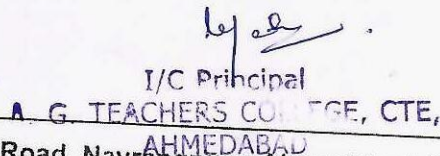 I/C Principal
A. G. TEACHERS COLLEGE, CTE,
AHMEDABAD
Road